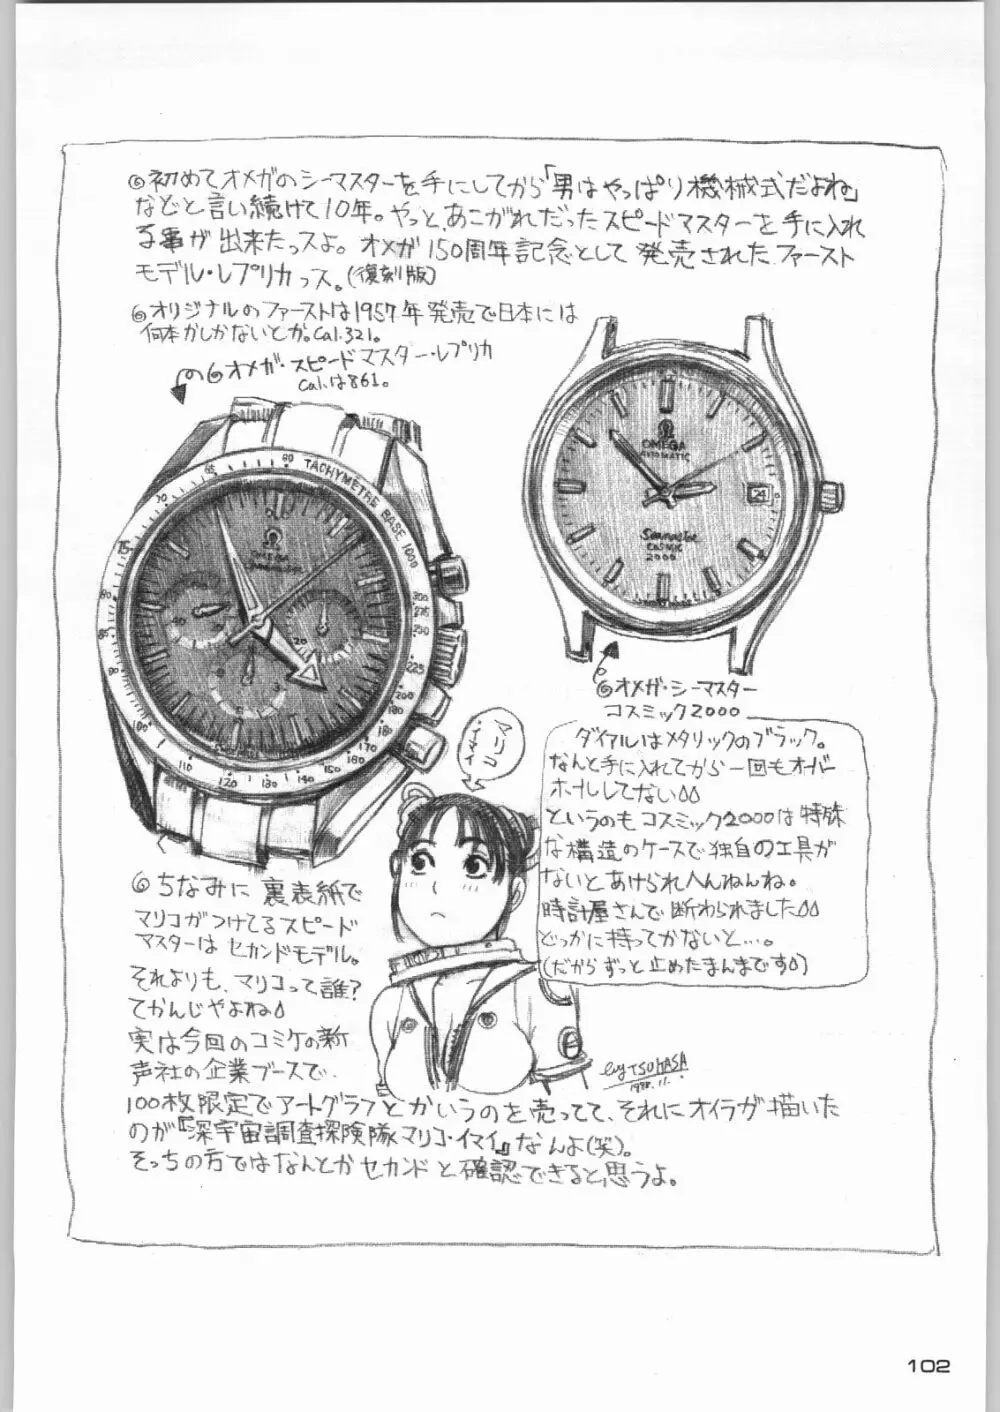 ◎初めてオメガのシーマスターを手にしてから「男はやっぱり機械式だよね」
などと言い続けて10年。やっと、あこがれだったスピードマスターを手に入れ
る事が出来たっスよ。オメガ150周年記念として発売されたファースト
モデル・レプリカっス。(復刻版)
◎オリジナルのファーストは1957年発売で日本には
何本かしかないとか。Cal.321。
◎オメガ・スピードマスター・レプリカ
Cal.は861。
TACHYMETRE BASE 1000
Ω
OMEGA
Ω
OMEGA
AUTOMATIC
24
Seamaster
COSMIC
2000
◎オメガ・シーマスター
コスミック2000
ダイアルはメタリックのブラック。
なんと手に入れてから一回もオーバー
ホールしてない
というのもコスミック2000は特殊
な構造のケースで独自の工具が
ないとあけられへんねんね。
時計屋さんで断わられました
どっかに持ってかないと…。
(だからずっと止めたまんまです)
マリコ・イマイ
◎ちなみに裏表紙で
マリコがつけてるスピード
マスターはセカンドモデル。
それよりも、マリコって誰?
てかんじやよね
実は今回のコミケの新
声社の企業ブースで、
100枚限定でアートグラフとかいうのを売ってて、それにオイラが描いた
のが『深宇宙調査探険隊マリコ・イマイ』なんよ(笑)。
そっちの方ではなんとかセカンドと確認できると思うよ。
by TSUKASA
1998.11.
102